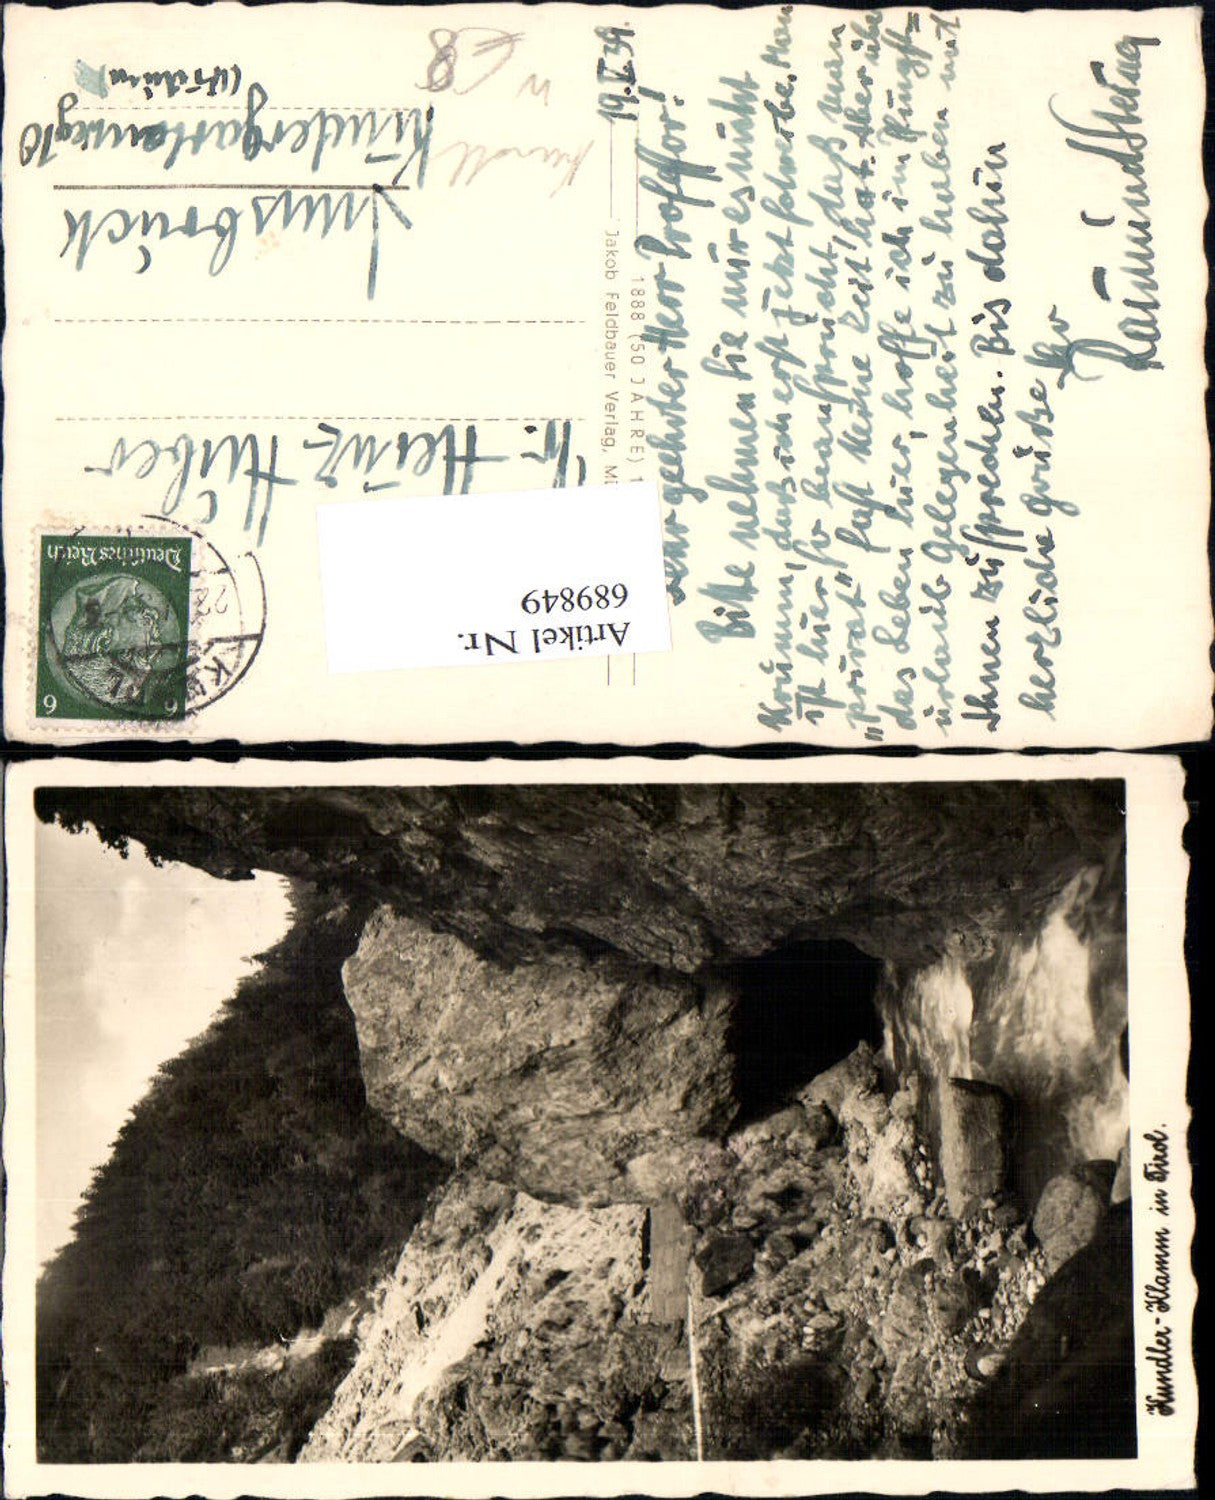 19.V.39
Sehr geehrter Herr Proffor!
Bitte nehmen Sie mir es nicht
krumm, daß ich erst jetzt folwerbe. Man
ist hier so beansprucht, daß man
"privat" fast keine Zeit hat. Aber übe
das Leben hier, hoffe ich im Pfingst=
urlaub Gelegenheit zu haben mit
Ihnen zu sprechen. Bis dahin
herzliche Grüße Ihr
Raimund
1888 (50 JAHRE) 1
Jakob Feldbauer Verlag, Mü
Heinz
Huber
Innsbruck
Kindergartenweg 10
Deutsches Reich
6 6
Artikel Nr.
689849
Kundler-Klamm in Tirol.